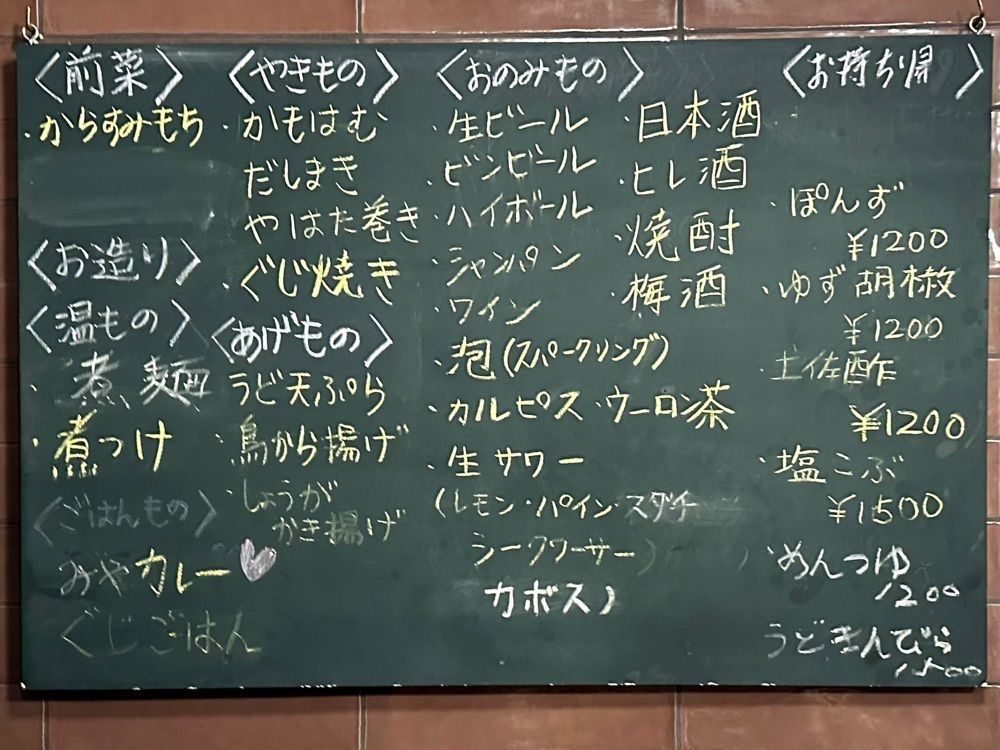 〈前菜〉
・からすみもち
〈お造り〉
〈温もの〉
・煮麺
・煮つけ
〈ごはんもの〉
みやカレー
ぐじごはん
〈やきもの〉
・かもはむ
だしまき
やはた巻き
・ぐじ焼き
〈あげもの〉
うど天ぷら
・鳥から揚げ
・しょうが
かき揚げ
〈おのみもの〉
・生ビール
・ビンビール
・ハイボール
・シャンパン
・ワイン
・泡(スパークリング)
・カルピス・ウーロン茶
・生サワー
(レモン・パイン・スダチ
シークワーサー
カボス)
・日本酒
・ヒレ酒
・焼酎
・梅酒
〈お持ち帰〉
・ぽんず
¥1200
・ゆず胡椒
¥1200
・土佐酢
¥1200
・塩こぶ
¥1500
・めんつゆ
1200
うどきんぴら